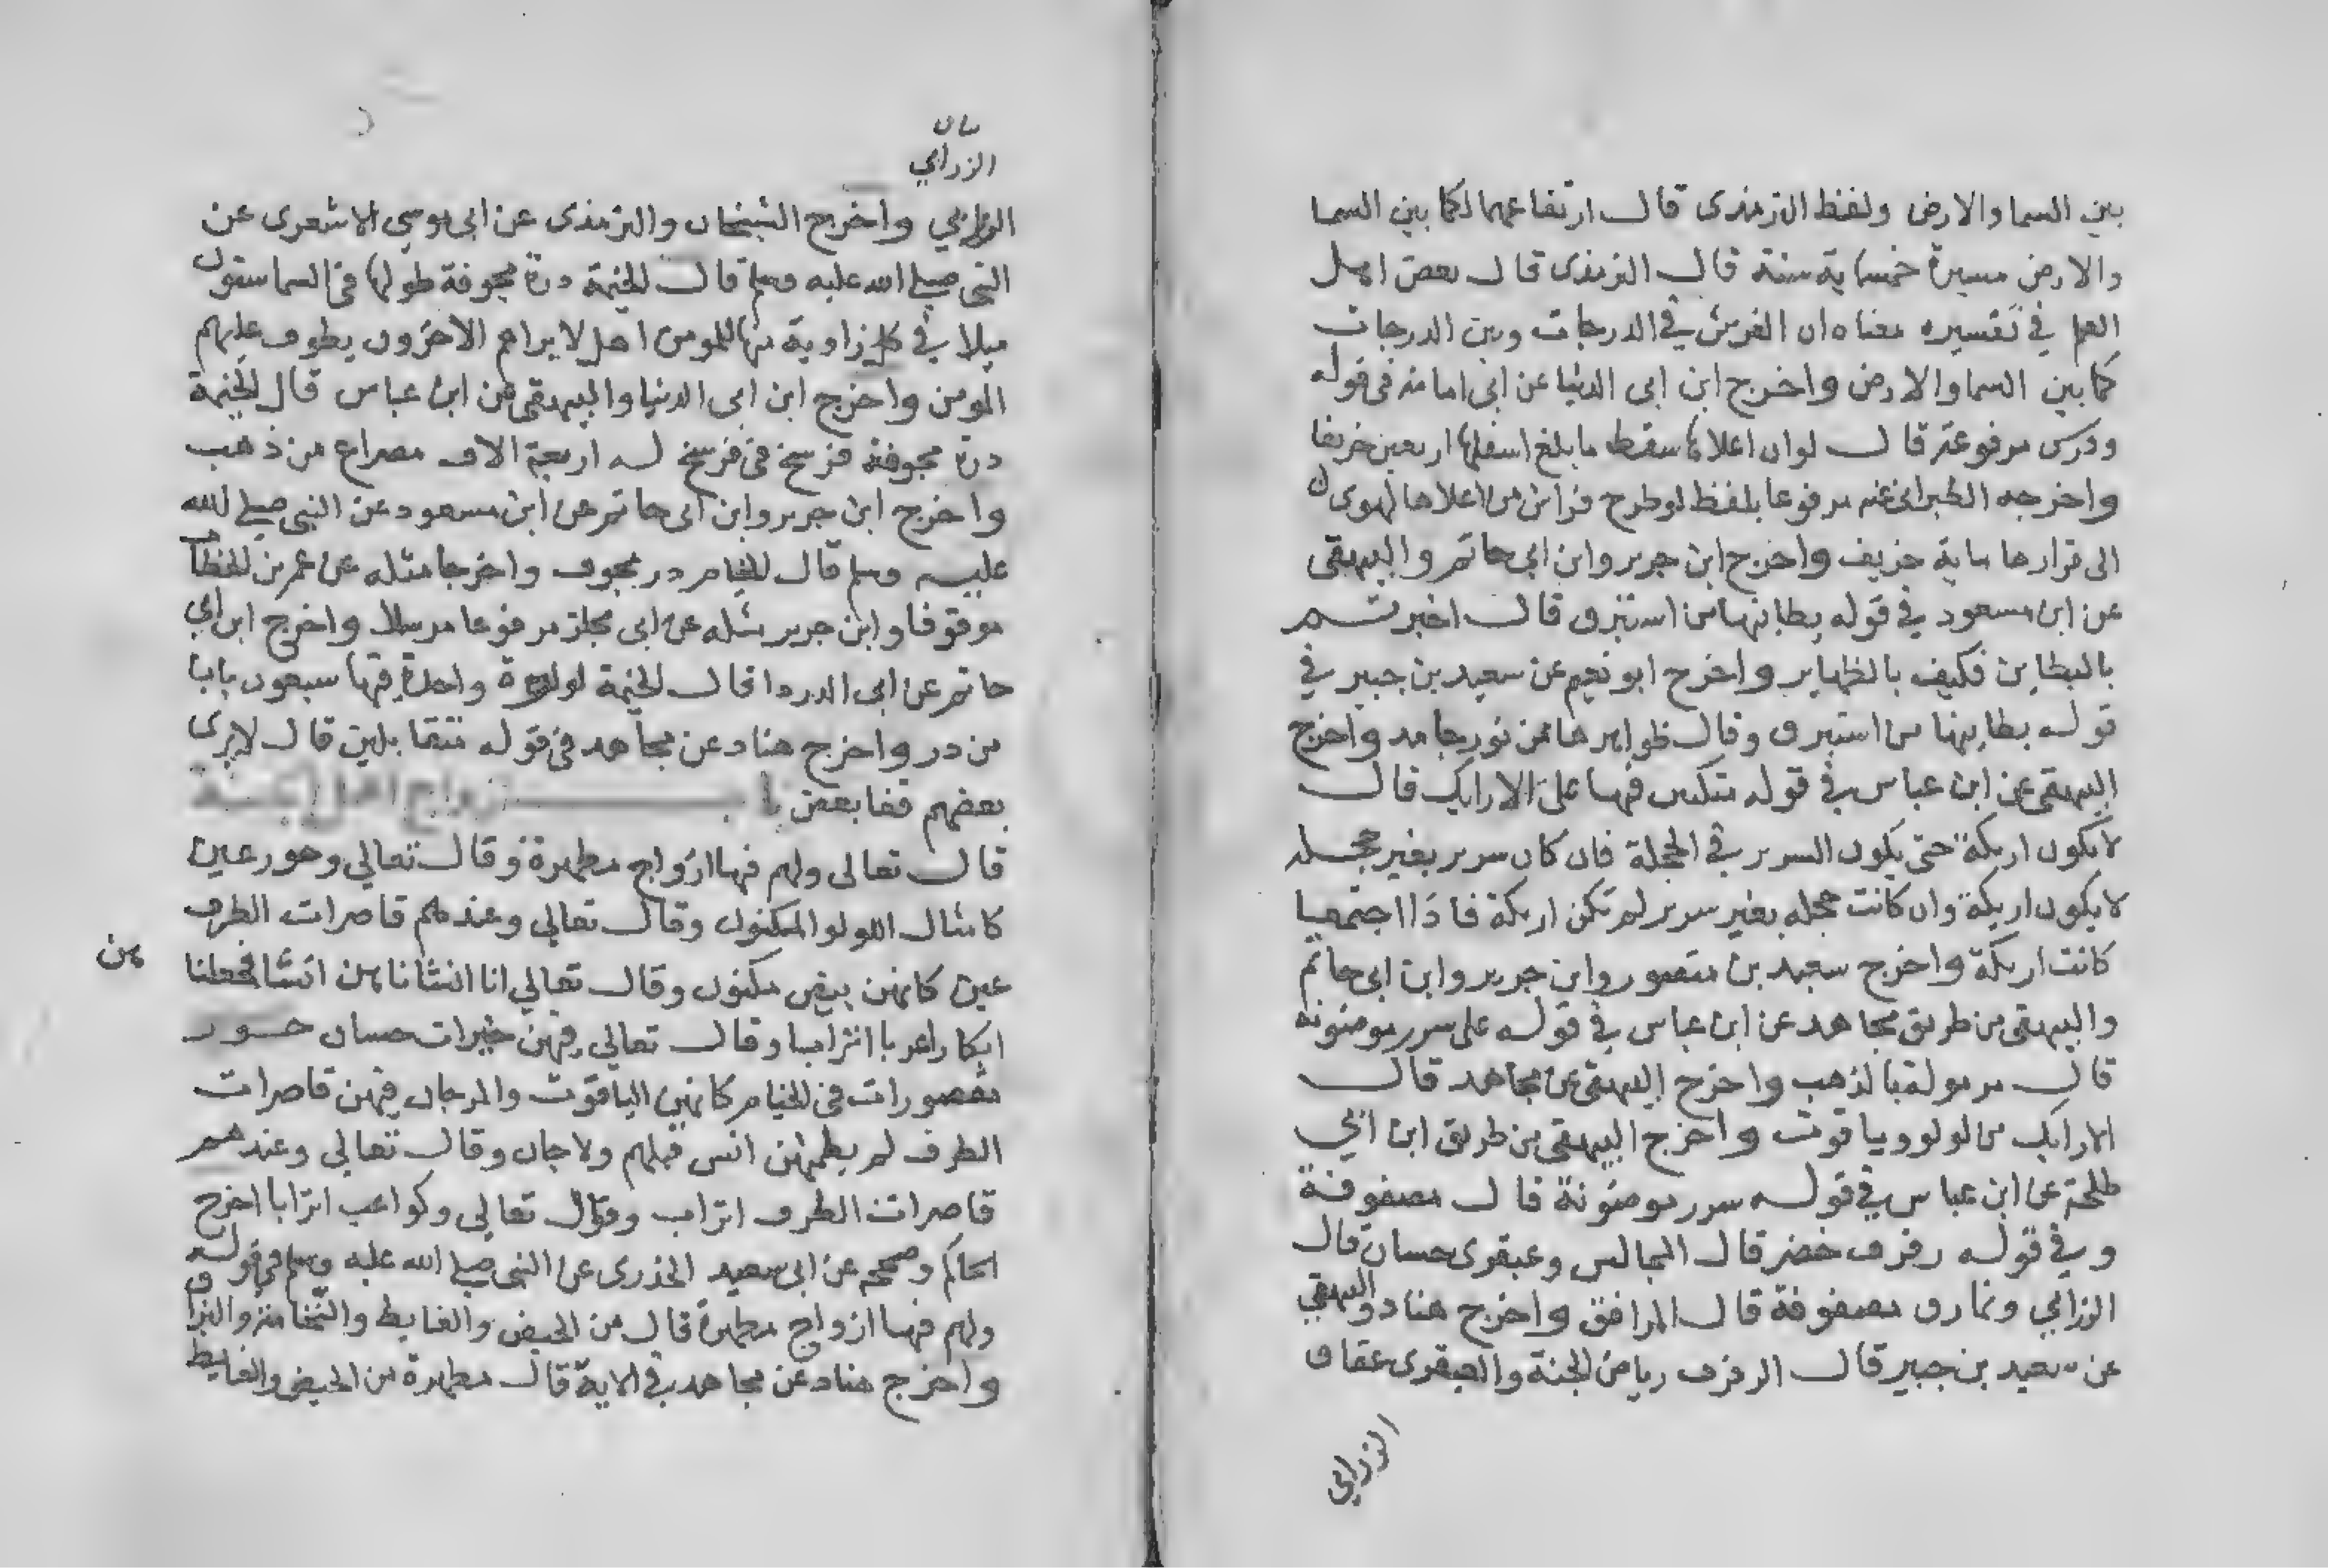 بين السما والارض ولفظ الترمذى قال ارتفاعهما لكما بين السما
والارض مسيرة خمسماية سنة قال الترمذى قال بعض اهل
العلم في تفسيره معناه ان الفرش في الدرجات وبين الدرجات
كما بين السما والارض واخرج ابن ابى الدنيا عن ابى امامة فى قوله
وفرش مرفوعة قال لو ان اعلاها سقط ما بلغ اسفلها اربعين خريفا
واخرجه الطبرانى عنه مرفوعا بلفظ لو طرح فراش من اعلاها لهوى
الى قرارها ماية خريف واخرج ابن جرير وابن ابي حاتم والبيهقى
عن ابن مسعود في قوله بطاينها من استبرق قال اخبرتم
بالبطاين فكيف بالظهاير واخرج ابو نعيم عن سعيد بن جبير في
قوله بطاينها من استبرق وقال ظواهرها من نور جامد واخرج
البيهقى عن ابن عباس في قوله متكئين فيها على الارايك قال
لا يكون اريكة حتى يكون السرير في الحجلة فان كان سرير بغير حجله
لا يكون اريكة وان كانت حجله بغير سرير لم تكن اريكة فاذا اجتمعيا
كانت اريكة واخرج سعيد بن منصور وابن جرير وابن ابى حاتم
والبيهقى من طريق مجاهد عن ابن عباس في قوله على سرر موضونة
قال مرمولة بالذهب واخرج البيهقى عن مجاهد قال
الارايك من لولو وياقوت واخرج البيهقى من طريق ابن ابي
طلحة عن ابن عباس في قوله سرر موضونة قال مصفوفة
وفي قوله رفرف خضر قال المجالس وعبقرى حسان قال
الزرابي ونمارق مصفوفة قال المرافق واخرج هناد والبيهقي
عن سعيد بن جبير قال الرفرف رياض الجنة والعبقرى عتاق
الزرابي
بيان
الزرابي
الزرابي واخرج الشيخان والترمذى عن ابى موسى الاشعرى عن
النبى صلى الله عليه وسلم قال الخيمة درة مجوفة طولها فى السما ستون
ميلا في كل زاوية منها للمومن اهل لا يراهم الاخرون يطوف عليهم
المومن واخرج ابن ابى الدنيا والبيهقى عن ابن عباس قال الخيمة
درة مجوفة فرسخ فى فرسخ له اربعة الاف مصراع من ذهب
واخرج ابن جرير وابن ابى حاتم عن ابن مسعود عن النبى صلى الله
عليه وسلم قال الخيام در مجوف واخرجا مثله عن عمر بن الخطاب
موقوفا وابن جرير مثله عن ابى مجلز مرفوعا مرسلا واخرج ابن ابي
حاتم عن ابى الدردا قال الخيمة لولوة واحدة فيها سبعون بابا
من در واخرج هناد عن مجاهد فى قوله متقابلين قال لا يرى
بعضهم قفا بعض باب ازواج اهل الجنة
قال تعالى ولهم فيها ازواج مطهرة وقال تعالي وحور عين
كامثال اللولو المكنون وقال تعالي وعندهم قاصرات الطرف
عين كانهن بيض مكنون وقال تعالي انا انشاناهن انشا فجعلنا
هن
ابكارا عربا اترابا وقال تعالي فيهن خيرات حسان حور
مقصورات فى الخيام كانهن الياقوت والمرجان فيهن قاصرات
الطرف لم يطمثهن انس قبلهم ولا جان وقال تعالى وعندهم
قاصرات الطرف اتراب وقال تعالى وكواعب اترابا اخرج
الحاكم وصححه عن ابى سعيد الخذرى عن النبى صلى الله عليه وسلم فى قوله
ولهم فيها ازواج مطهرة قال من الحيض والغايط والنخامة والبزاق
واخرج هناد عن مجاهد في الاية قال مطهرة من الحيض والغايط